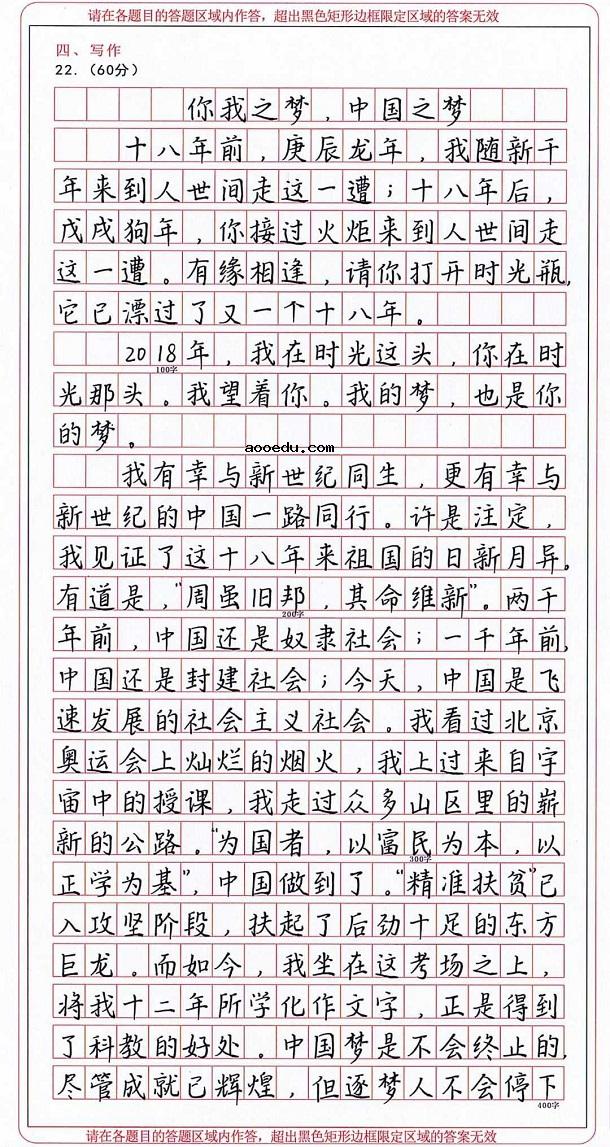 请在各题目的答题区域内作答，超出黑色矩形边框限定区域的答案无效
四、写作
22.（60分）
你我之梦，中国之梦
十八年前，庚辰龙年，我随新千
年来到人世间走这一遭；十八年后，
戊戌狗年，你接过火炬来到人世间走
这一遭。有缘相逢，请你打开时光瓶，
它已漂过了又一个十八年。
2018年，我在时光这头，你在时
100字
光那头。我望着你。我的梦，也是你
的梦。
aooedu.com
我有幸与新世纪同生，更有幸与
新世纪的中国一路同行。许是注定，
我见证了这十八年来祖国的日新月异。
有道是，“周虽旧邦，其命维新”。两千
200字
年前，中国还是奴隶社会；一千年前，
中国还是封建社会；今天，中国是飞
速发展的社会主义社会。我看过北京
奥运会上灿烂的烟火，我上过来自宇
宙中的授课，我走过众多山区里的崭
新的公路。“为国者，以富民为本，以
300字
正学为基”，中国做到了。“精准扶贫”已
入攻坚阶段，扶起了后劲十足的东方
巨龙。而如今，我坐在这考场之上，
将我十二年所学化作文字，正是得到
了科教的好处。中国梦是不会终止的，
尽管成就已辉煌，但逐梦人不会停下
400字
请在各题目的答题区域内作答，超出黑色矩形边框限定区域的答案无效